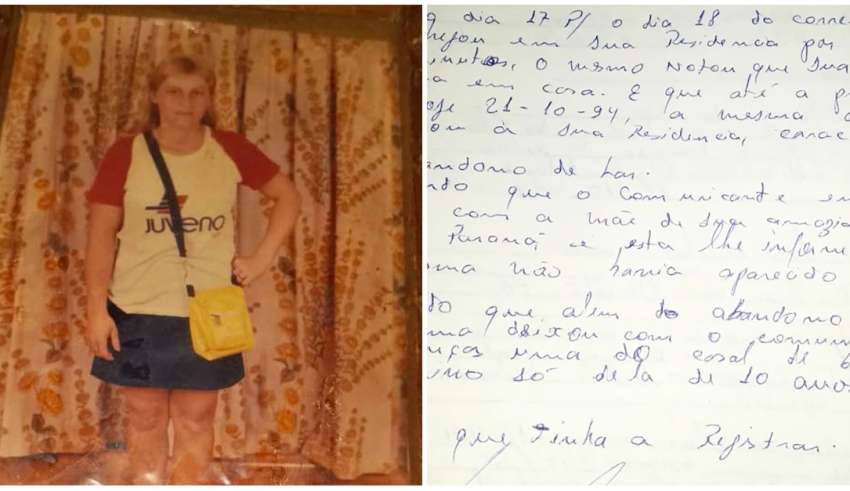 JUVENO
dia 17 P/ o dia 18 do corren
em sua Residencia por
o mesmo Notou que sua
em casa. E que até a p
21-10-94, a mesma
à sua Residencia, carac
andono de Lar.
ndo que o Comunicante en
com a mãe de sua amazia
Paraná e esta lhe inform
ma não havia aparecido
do que alem do abandono
ma deixou com o comun
nças uma do casal de 6
ino só dela de 10 anos
que tinha a Registrar.